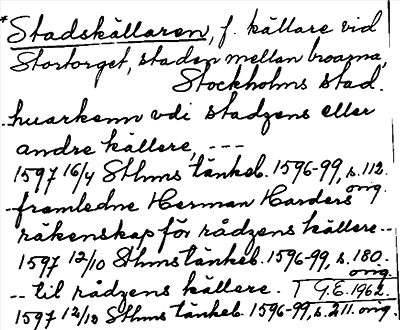 *Stadskällaren, f. källare vid
Stortorget, staden mellan broarna,
Stockholms stad.
..huarkenn vdi stadzens eller
andre källere, ---
1597 16/4 Sthms tänkeb. 1596-99, s. 112.
orig.
-framledne Herman Harders
räkenskap för rådzens källere--
1597 12/10 Sthms tänkeb. 1596-99, s. 180.
orig.
-- til rådzens källere. G.E. 1962.
1597 12/12 Sthms tänkeb. 1596-99, s. 211. orig.